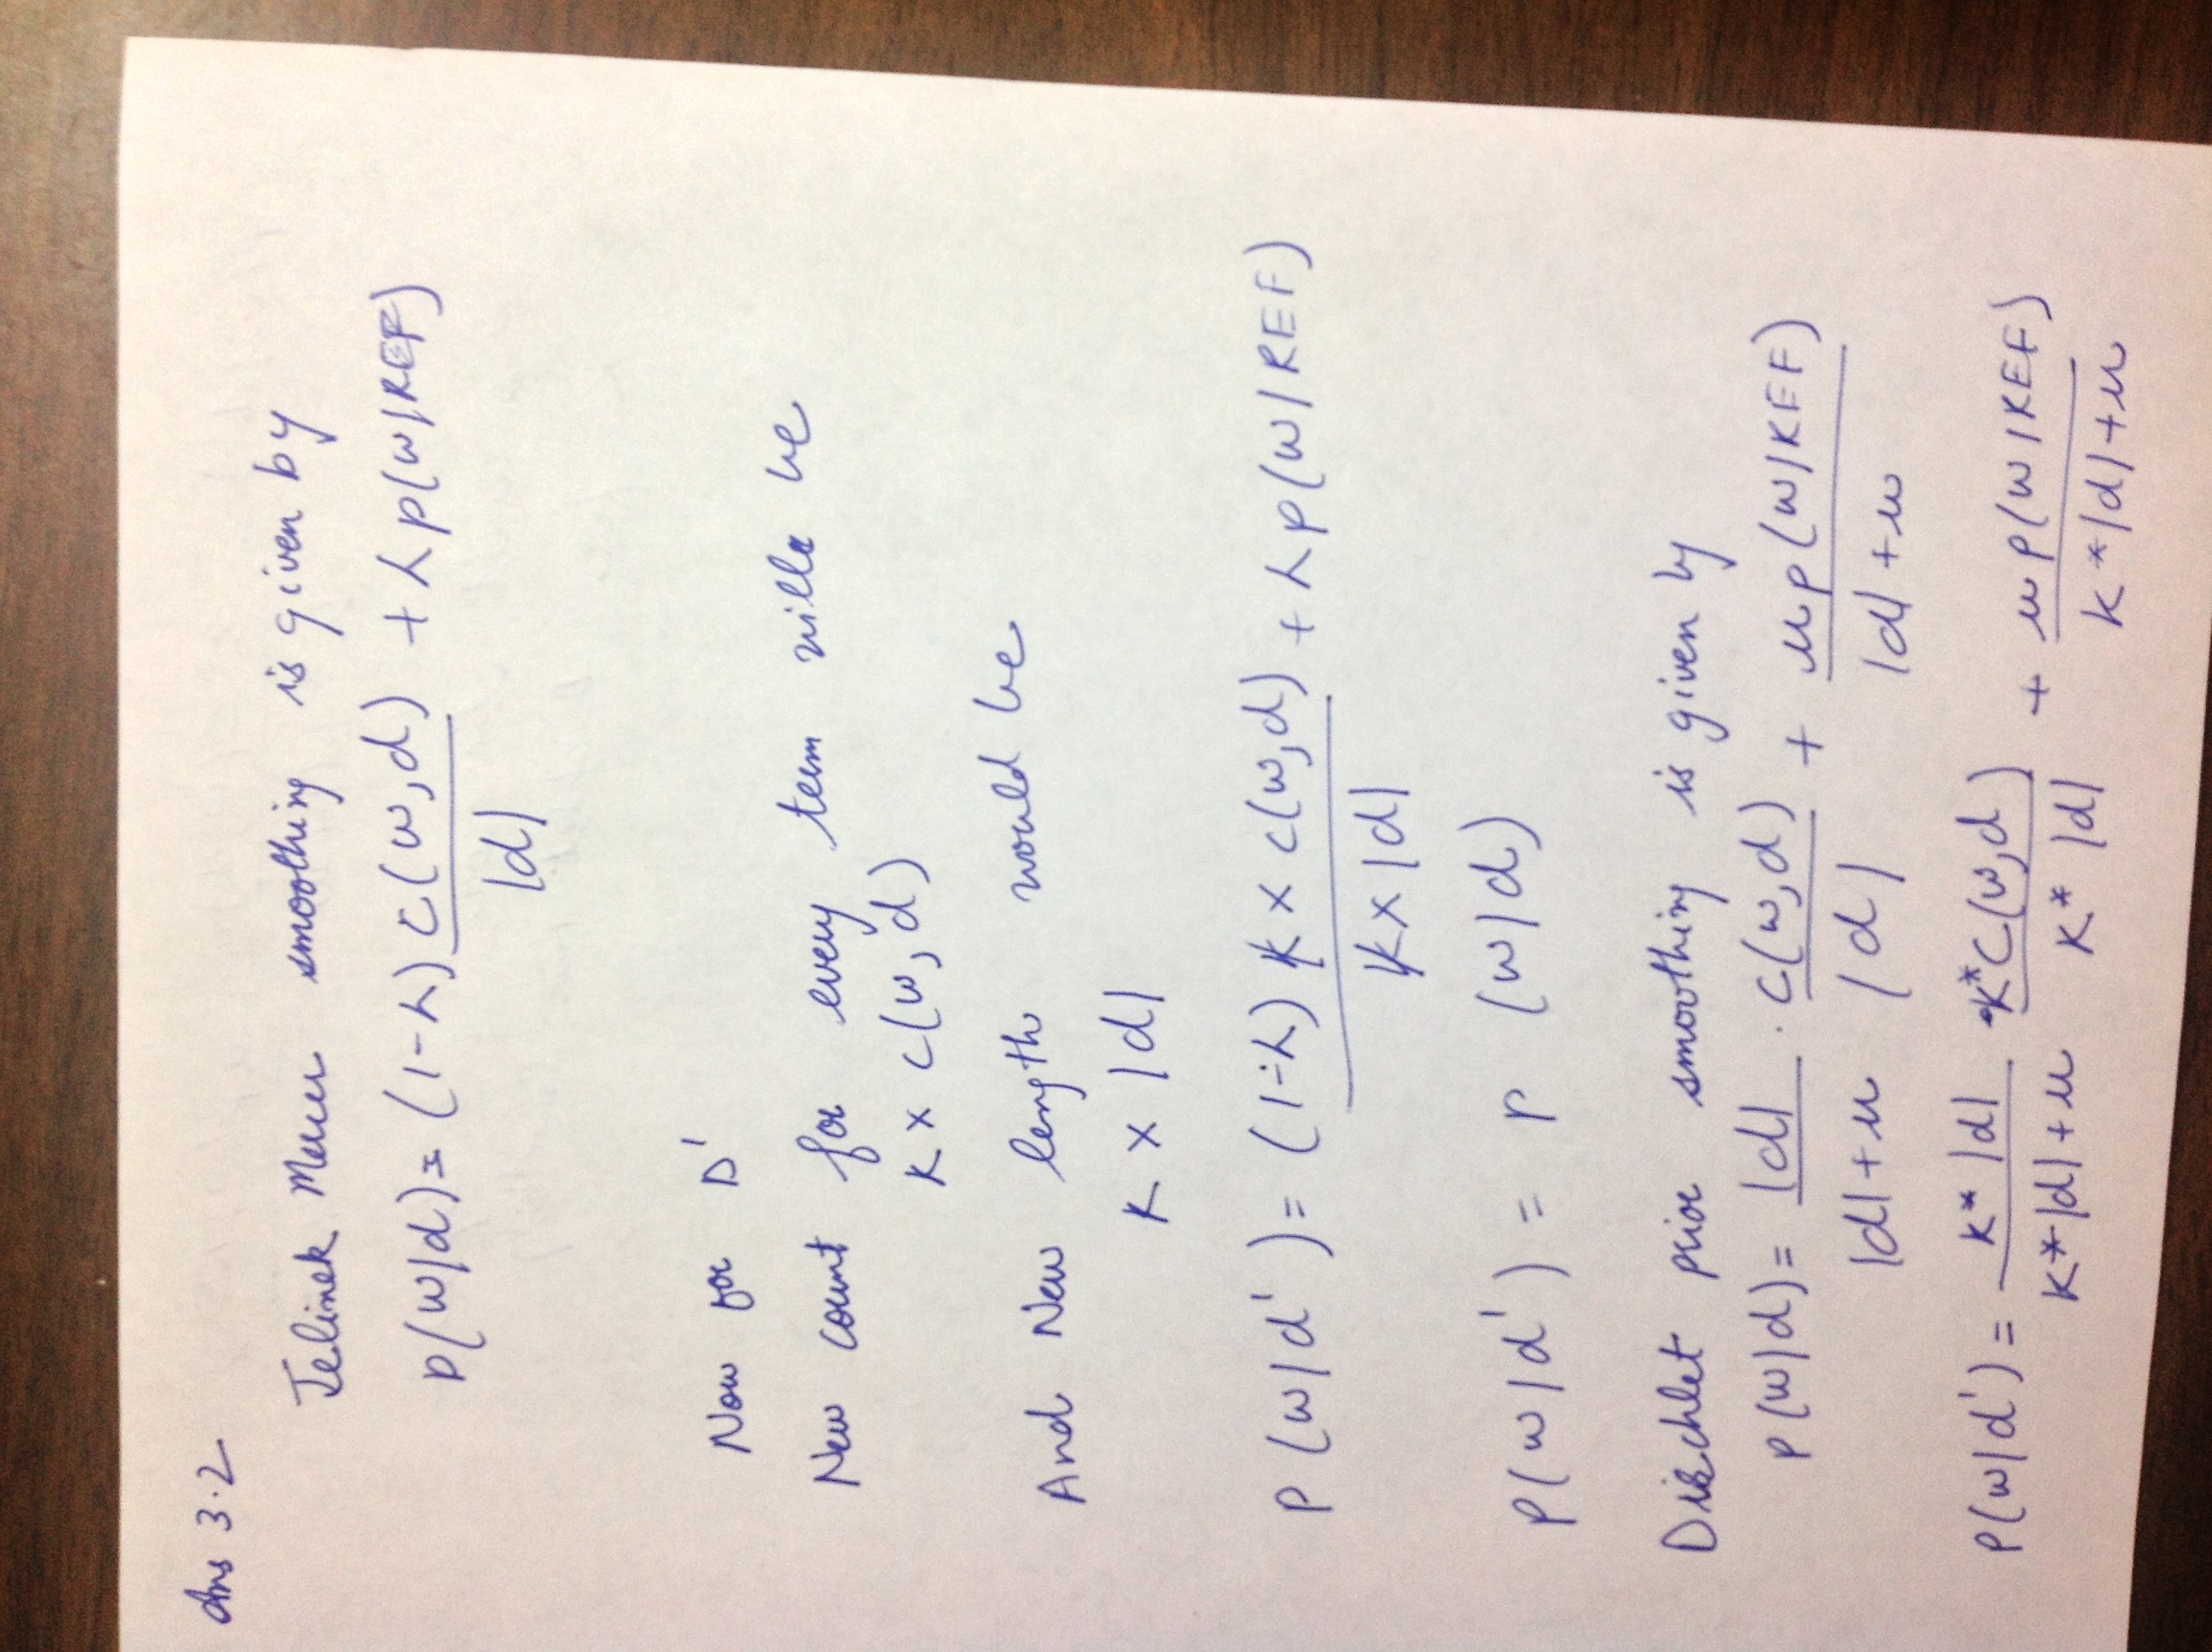 Ans 3.2
Jelinek Mercer smoothing is given by
p(w/d) = (1-λ) c(w,d) / |d| + λ p(w/REF)
Now for D'
New count for every term will be
K x c(w,d)
And New length would be
K x |d|
P(w/d') = (1-λ) K x c(w,d) / K x |d| + λ p(w/REF)
P(w/d') = P (w/d)
Dirichlet prior smoothing is given by
P(w/d) = |d| / |d|+μ . c(w,d) / |d| + μ p(w/REF) / |d|+μ
P(w/d') = K* |d| / K*|d|+μ . K*C(w,d) / K* |d| + μ p(w/REF) / K*|d|+μ